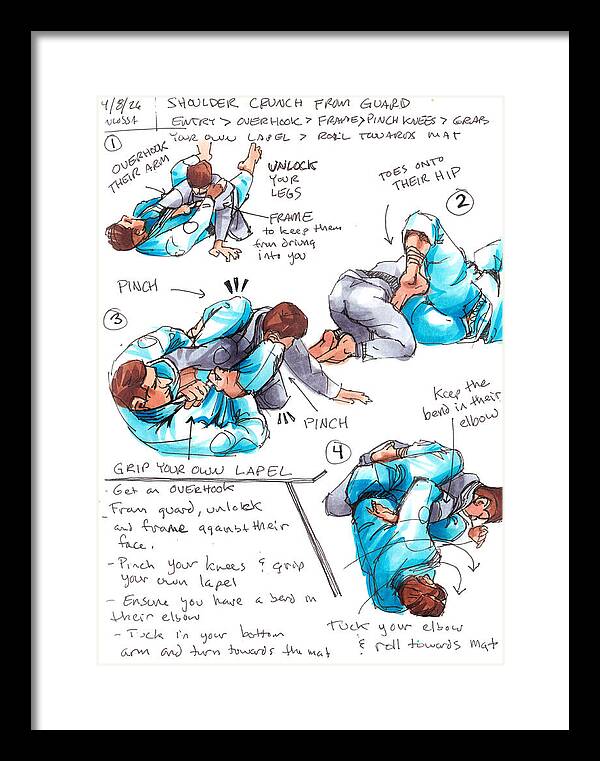 4/8/26
SHOULDER CRUNCH FROM GUARD
ENTRY > OVERHOOK > FRAME > PINCH KNEES > GRAB
YOUR OWN LAPEL > ROLL TOWARDS MAT
1
OVERHOOK
THEIR ARM
UNLOCK
YOUR
LEGS
FRAME
to keep them
from driving
into you
TOES ONTO
THEIR HIP
2
PINCH
3
PINCH
GRIP YOUR OWN LAPEL
Keep the
bend in their
elbow
4
- Get an OVERHOOK
- From guard, unlock
and frame against their
face.
- Pinch your knees & grip
your own lapel
- Ensure you have a bend in
their elbow
- Tuck in your bottom
arm and turn towards the mat
Tuck your elbow
& roll towards mat